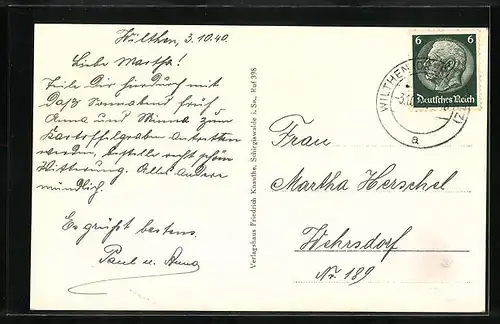 Wilthen, 3.10.40.
Liebe Martha!
Teile Dir hierdurch mit
daß Sonnabend früh
Anna und Minna zum
Kartoffelgraben antreten
werden, bestelle recht schön
Witterung. Alles andere
mündlich.
Es grüßt bestens
Paul u. Anna
Verlagshaus Friedrich Knauthe, Schirgiswalde i. Sa., Ruf 398
6 6
Deutsches Reich
WILTHEN
a
Frau
Martha Herschel
Wehrsdorf
Nr. 189